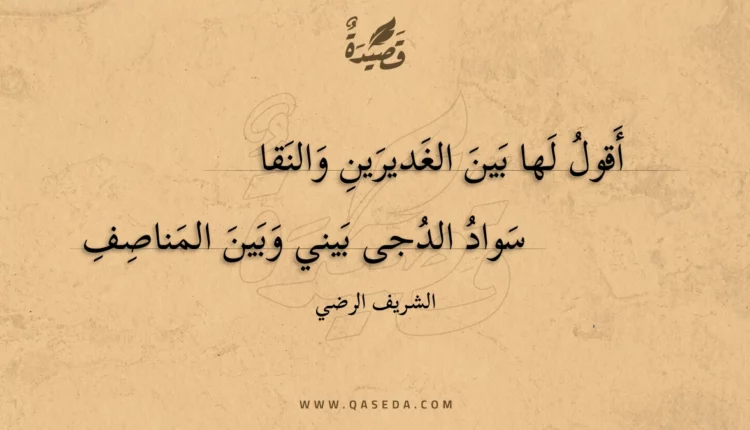 قَصِيْدَةٌ
أَقولُ لَها بَينَ الغَديرَينِ وَالنَقا
سَوادُ الدُجى بَيني وَبَينَ المَناصِفِ
الشريف الرضي
WWW.QASEDA.COM